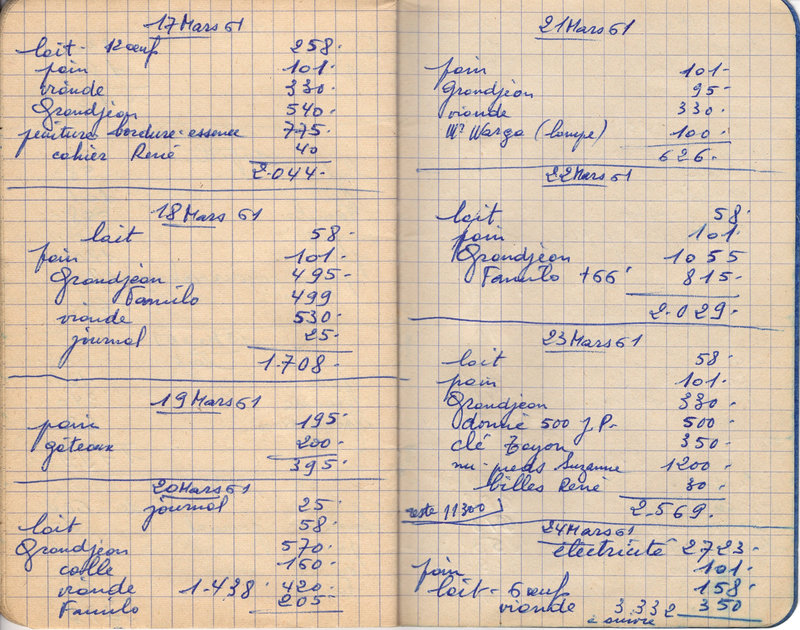 17 Mars 61
lait - 12 œufs 258.
pain 101.
viande 330.
Grandjean 540.
peinture bordure. essence 775.
cahier René 40
2.044.
18 Mars 61
lait 58.
pain 101.
Grandjean 495.
Familo 499
viande 530.
journal 25.
1.708.
19 Mars 61
pain 195.
gâteaux 200.
395.
20 Mars 61
journal 25.
lait 58.
Grandjean 570.
colle 160.
viande 1.438. 420.
Familo 205.
21 Mars 61
pain 101.
Grandjean 95.
viande 330.
Mr Warga (lampe) 100.
626.
22 Mars 61
lait 58.
pain 101.
Grandjean 1055
Familo +66' 815.
2.029.
23 Mars 61
lait 58.
pain 101.
Grandjean 330.
donné 500 J.P. 500.
clé 350.
nu-pieds Suzanne 1200.
billes René 30.
reste 11300 2.569.
24 Mars 61
électricité 2723.
pain 101.
lait - 6 œufs 158.
viande 3.332 350
à suivre